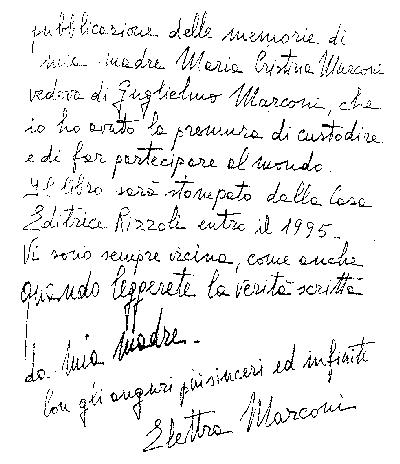 pubblicazione delle memorie di
mia madre Maria Cristina Marconi
vedova di Guglielmo Marconi, che
io ho avuto la premura di custodire
e di far partecipare al mondo.
Il libro sarà stampato dalla Casa
Editrice Rizzoli entro il 1995.
Vi sono sempre vicina, come anche
quando leggerete la verità scritta
da mia Madre.
Con gli auguri più sinceri ed infiniti
Elettra Marconi